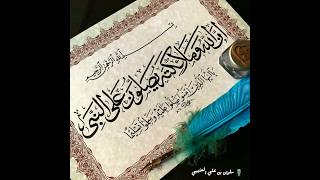 بسم الله الرحمن الرحيم
إن الله وملائكته يصلون على النبي
يا أيها الذين آمنوا صلوا عليه وسلموا تسليما